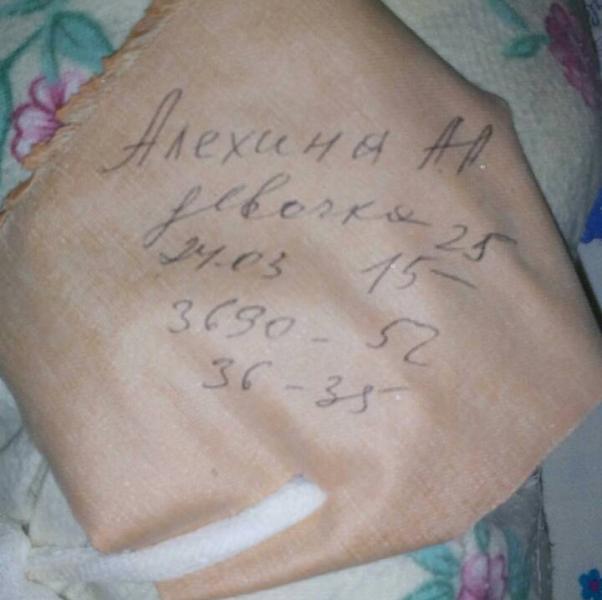 Алехина А.А
девочка
24.03 15 25
3690 - 52
36 - 35